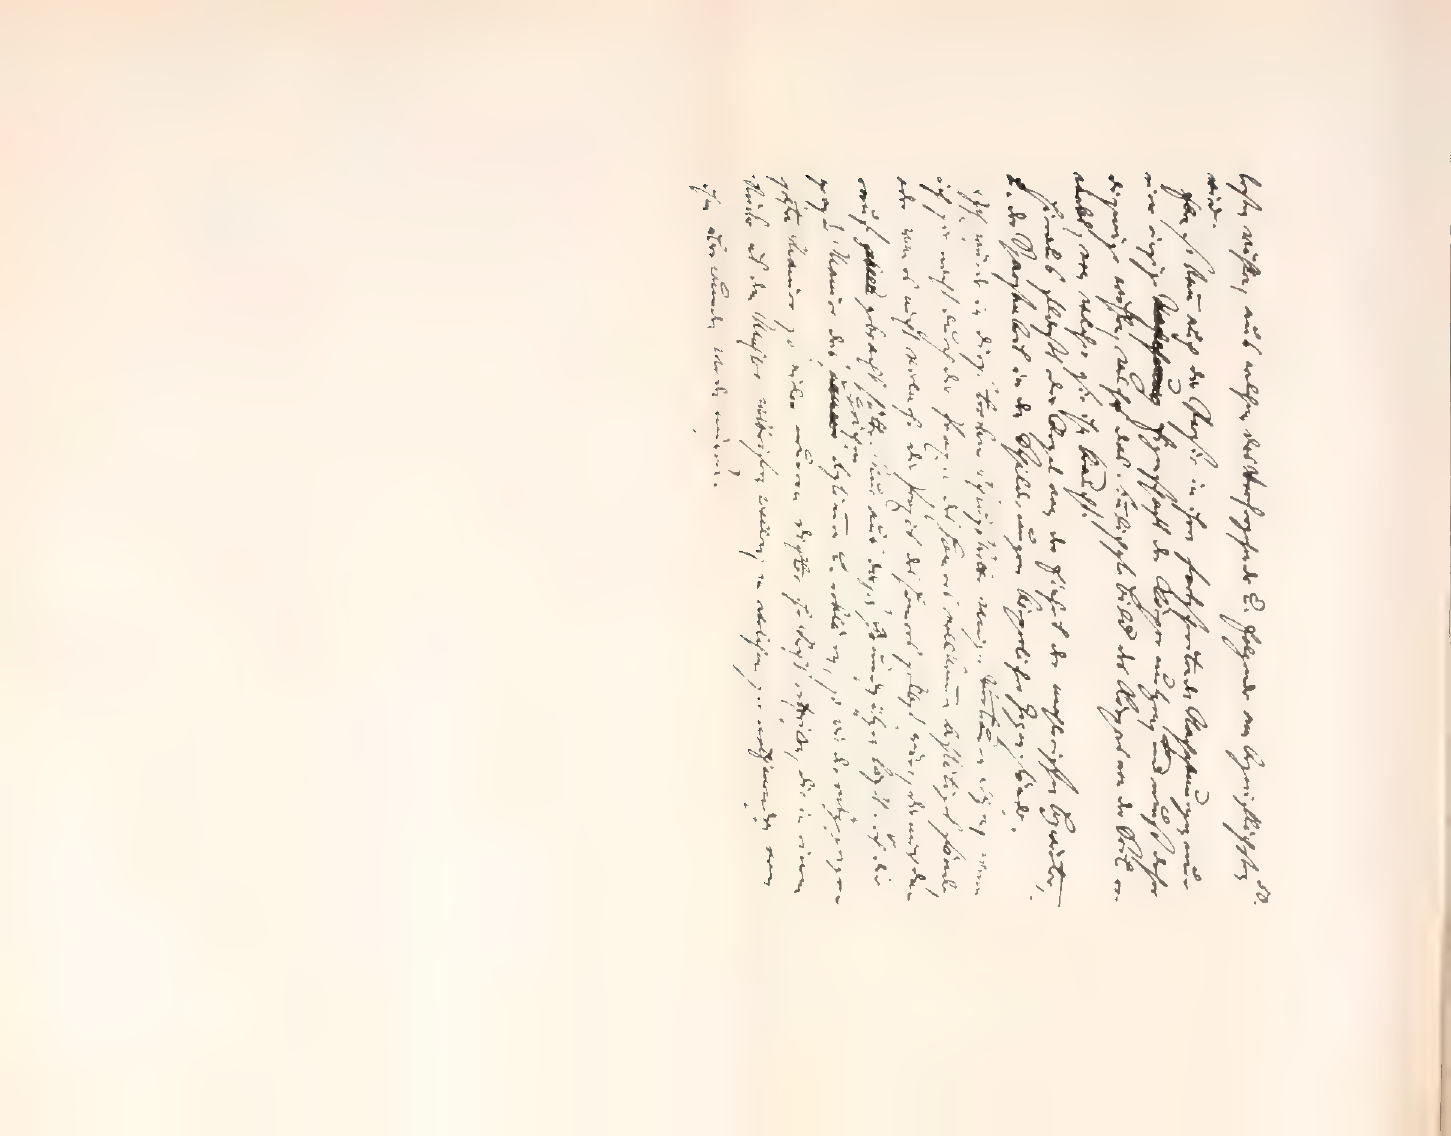 wählen müssen, aus welchem das Vorhergehende u. Folgende am begreiflichsten
wird.
Eben so kann auch die Poesie in ihren fortschreitenden Nachahmungen nur
eine einzige Eigenschaft der Körper nutzen, und muß daher
diejenige wählen, welche das sinnlichste Bild des Körpers von der Seite er-
wecket, von welcher sie ihn braucht.
Hieraus fließt die Regel von der Einheit der mahlerischen Beywörter,
u. der Sparsamkeit in den Schilderungen körperlicher Gegenstände.
Ich würde in diese trockene Schlußkette weniger Vertrauen setzen, wenn
ich sie nicht durch die Praxis des Homers vollkommen bestätiget fände,
oder wenn es nicht vielmehr die Praxis des Homers selbst wäre, die mich dar-
auf gebracht hätte. Nur aus diesen Grundsätzen läßt sich die
große Manier des Griechen bestimmen u. erklären, so wie der entgegen
gesetzten Manier so vieler neuern Dichter ihr Recht ertheilen, die in einem
Stücke mit dem Mahler wetteifern wollen, in welchem sie nothwendig von
ihm überwunden werden müssen.